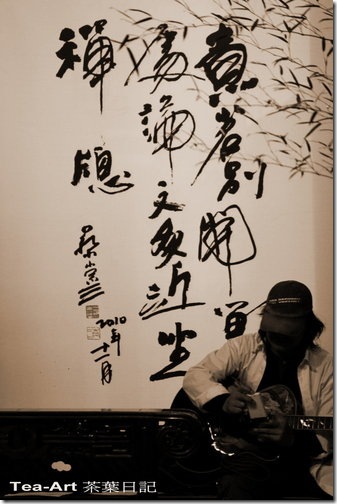 煮茗別開留
場論文多近坐
禪窻
2010年
十一月
Tea-Art 茶葉日記